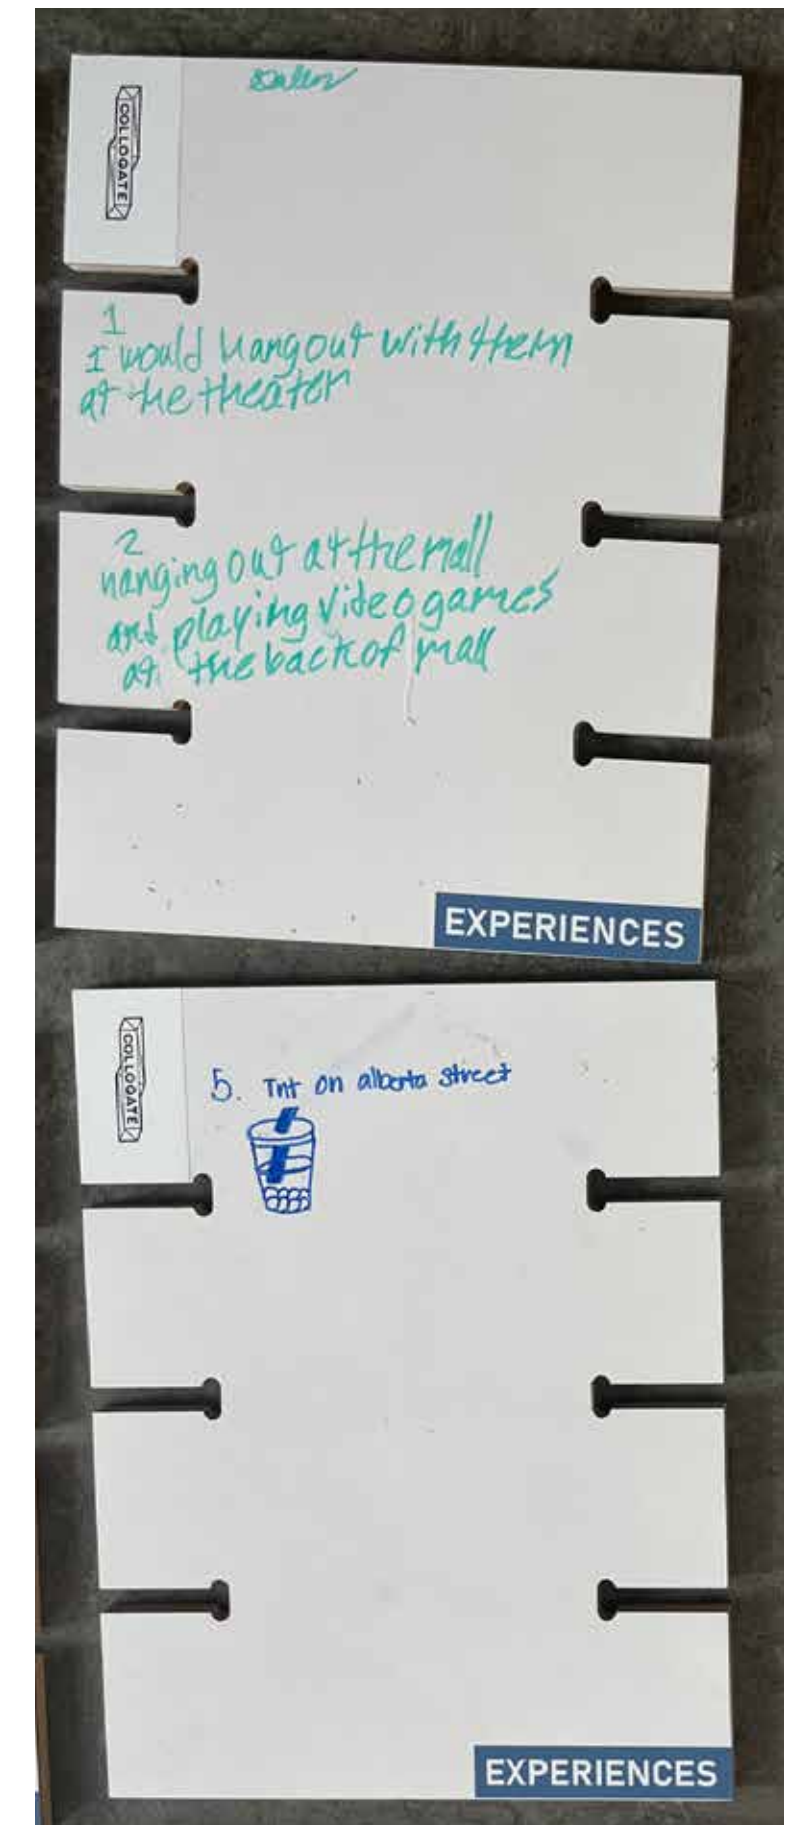 COLLOQATE
1
I would hangout with them
at the theater
2
hanging out at the mall
and playing video games
at the back of mall
EXPERIENCES
COLLOQATE
5. Tnt on alberta street
EXPERIENCES